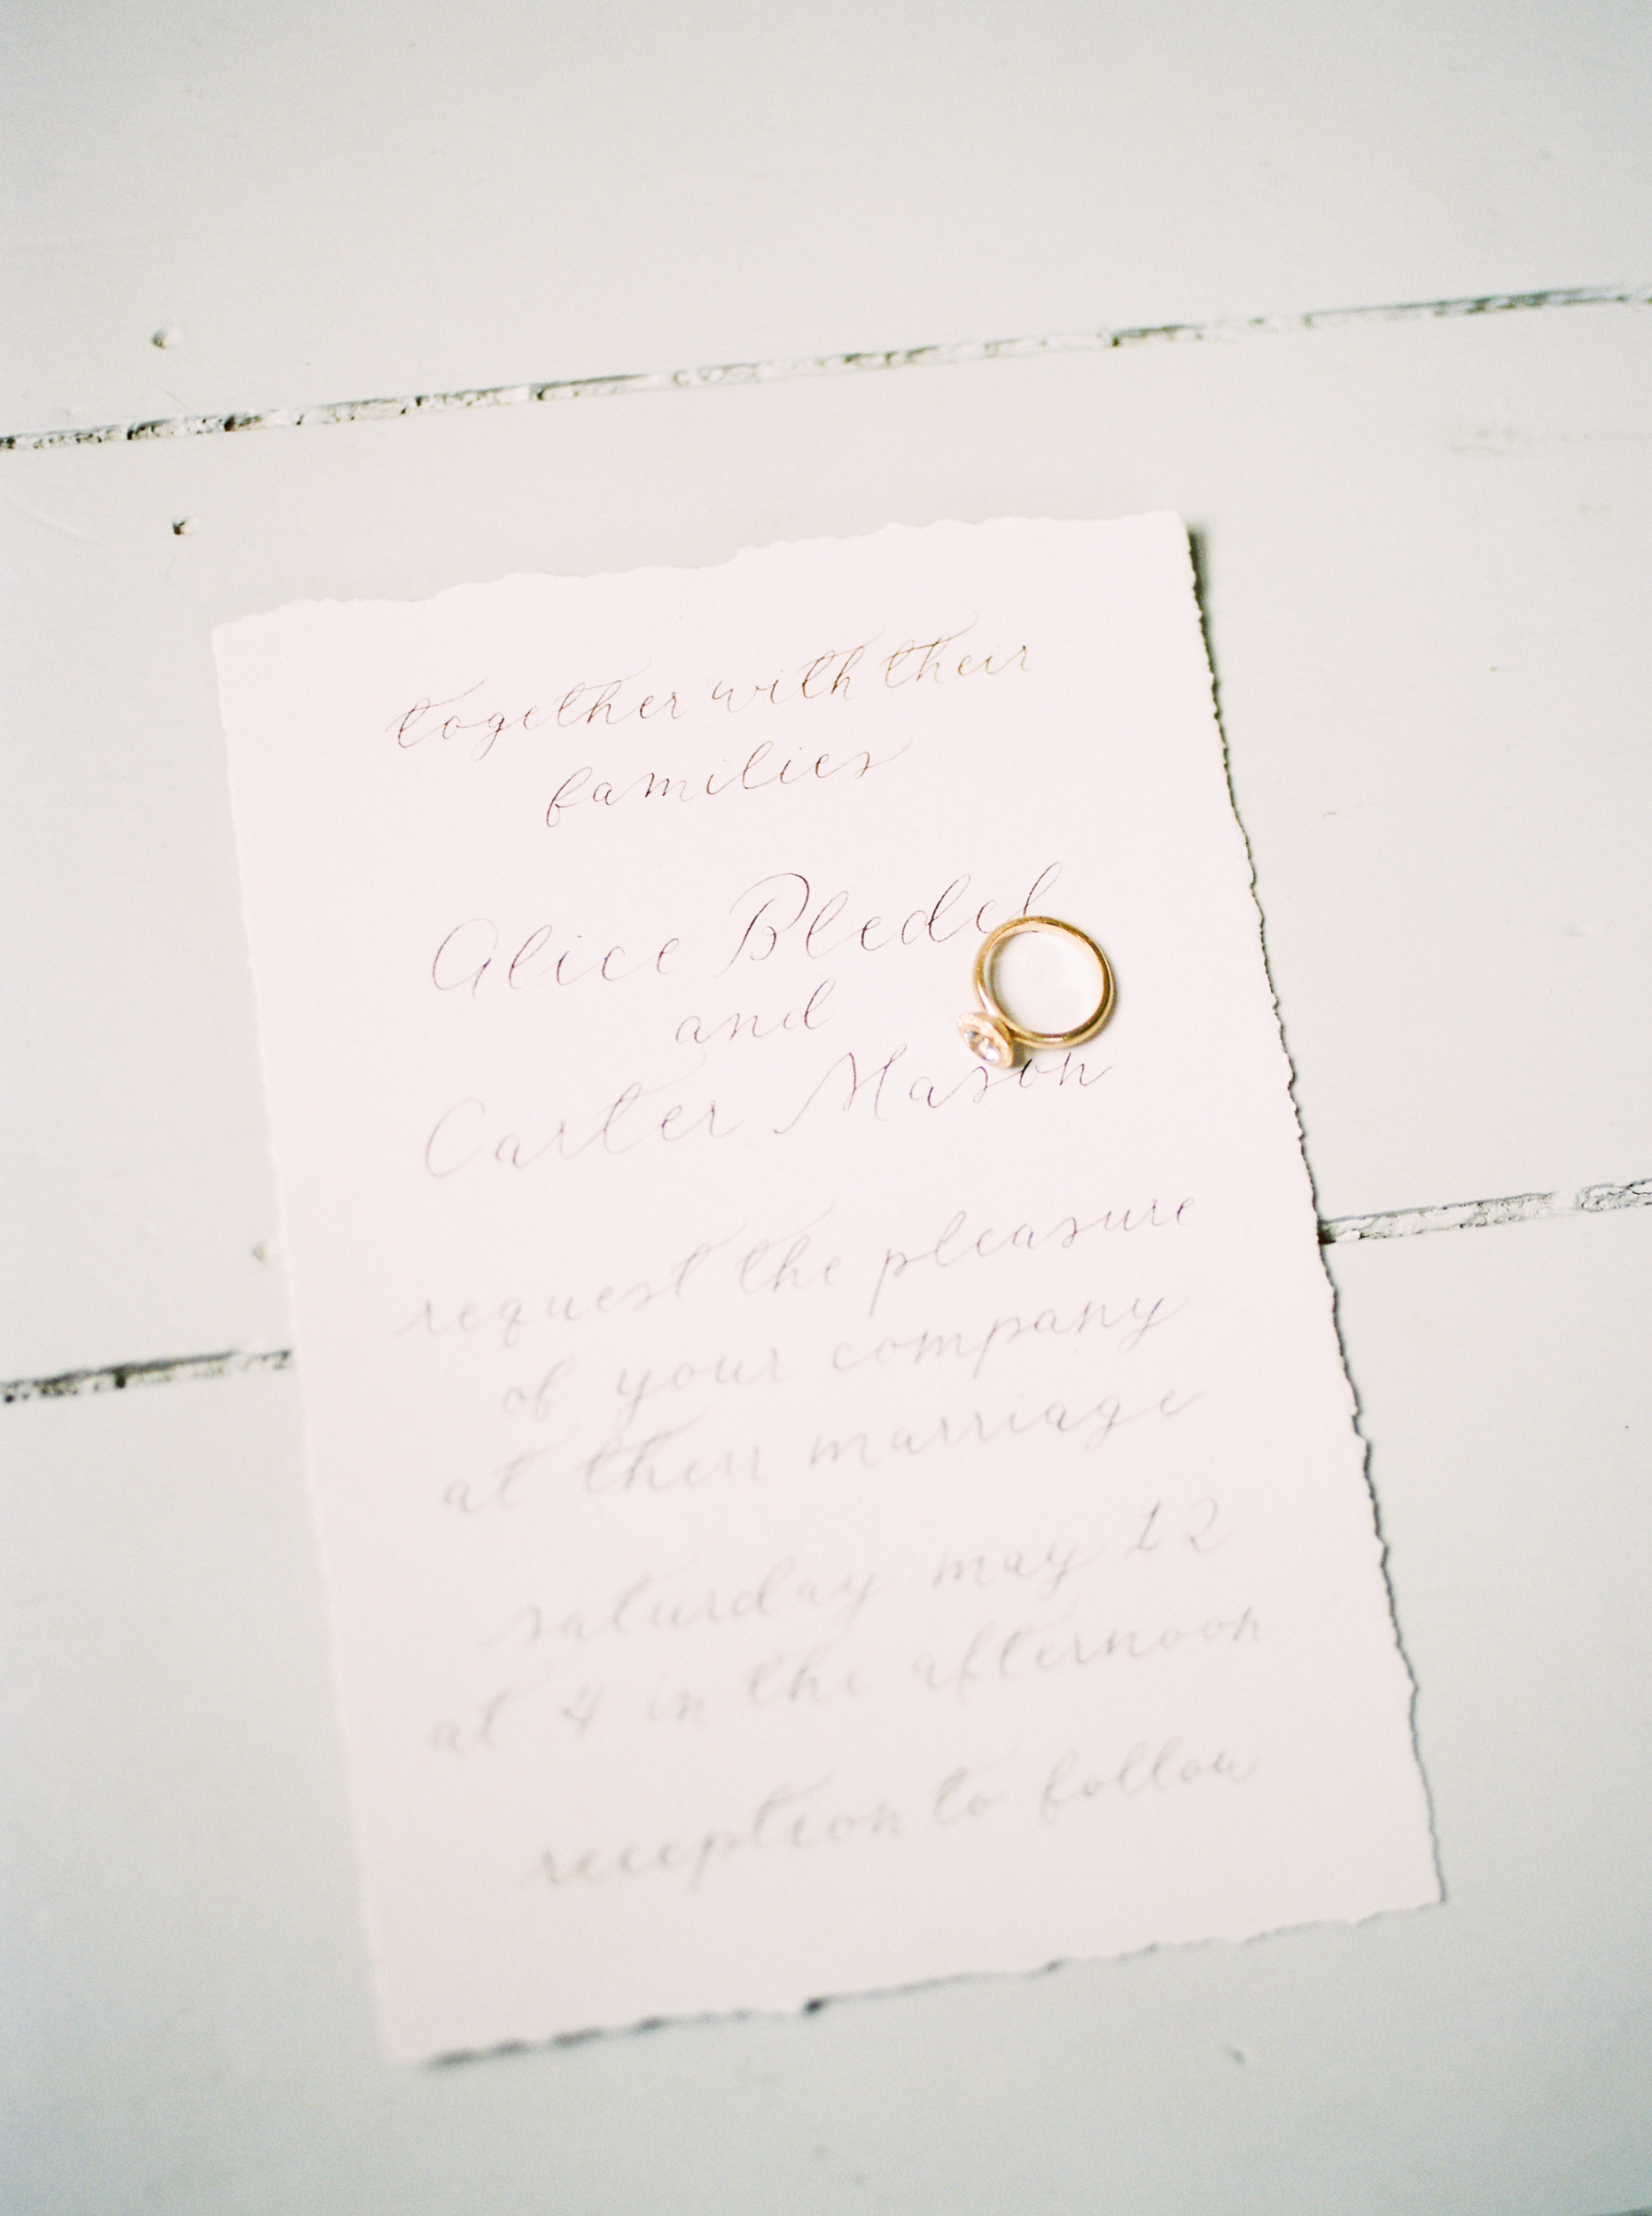 together with their
families
Alice Bledel
and
Carter Mason
request the pleasure
of your company
at their marriage
saturday may 12
at 4 in the afternoon
reception to follow